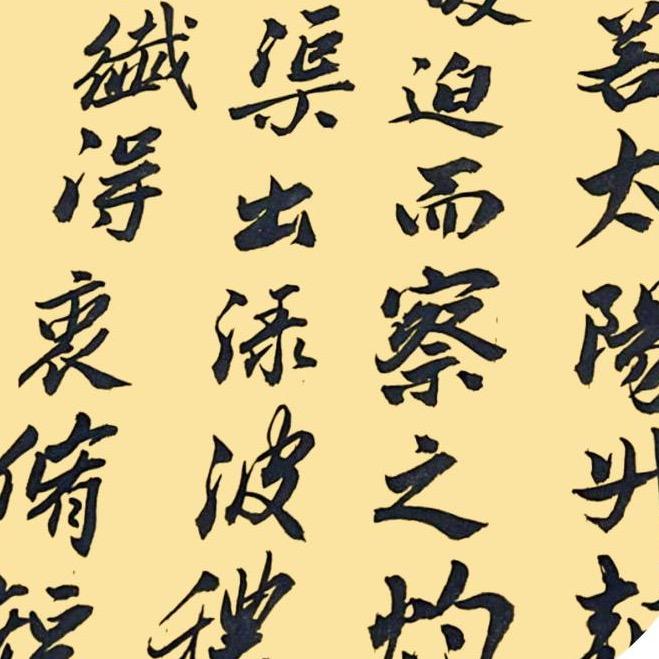 若太陽升朝
迫而察之灼
渠出淥波穠
纖得衷脩短